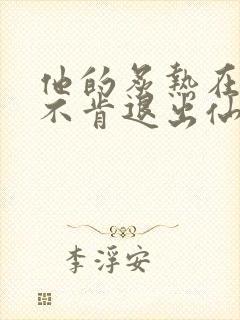 他的炙热在
不肯退出仙
李浮安